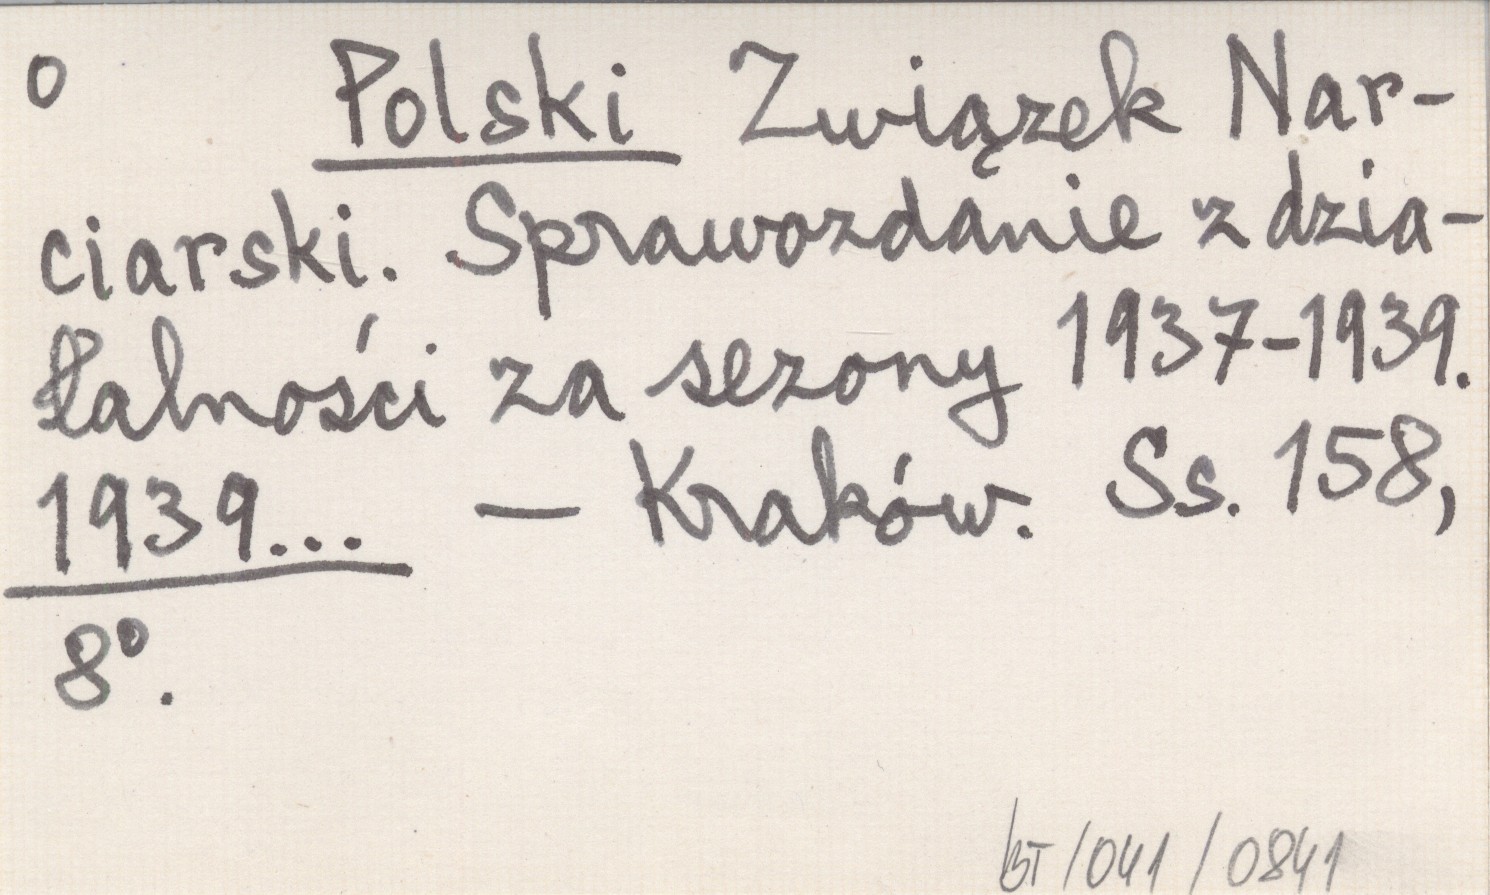 o Polski Związek Nar-
ciarski. Sprawozdanie z dzia-
łalności za sezony 1937-1939.
1939... — Kraków. Ss. 158,
8°.
BT/041/0841